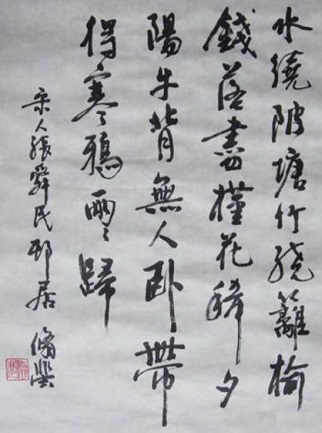 水繞陂塘竹繞籬榆
錢落盡槿花稀夕
陽牛背無人卧帶
得寒鴉兩々歸
宋人張舜民邨居